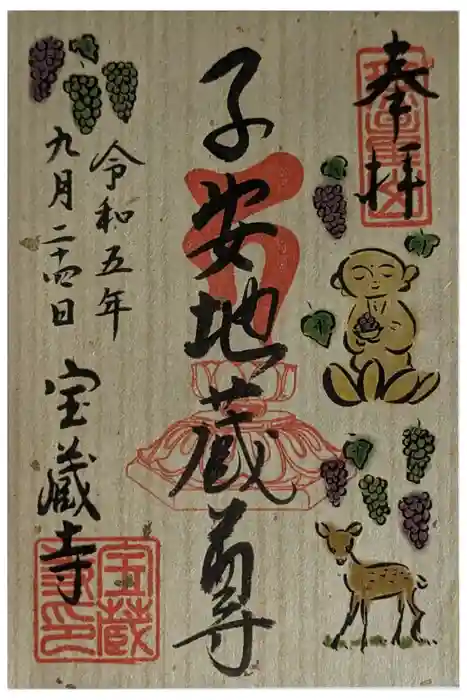 奉拝
子安地蔵尊
令和五年
九月二十四日
宝蔵寺
宝蔵